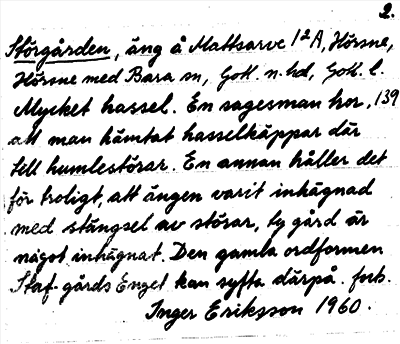 2.
Störgården, äng å Mattsarve 1²A, Hörsne,
Hörsne med Bara sn, Gotl. n. hd, Gotl. l.
Mycket hassel. En sagesman hor, 139
att man hämtat hasselkäppar där
till humlestörar. En annan håller det
för troligt, att ängen varit inhägnad
med stängsel av störar, ty gård är
något inhägnat. Den gamla ordformen
Staf-gårds Enget kan syfta därpå. forts.
Inger Eriksson 1960.